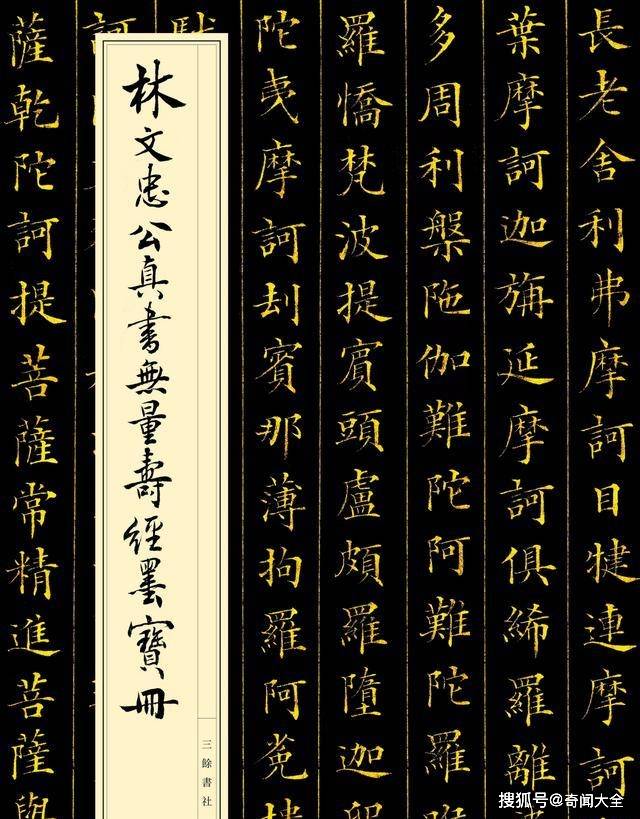 長老舍利弗摩訶目犍連摩訶
葉摩訶迦旃延摩訶俱絺羅離
多周利槃陁伽難陀阿難陀羅
羅憍梵波提賓頭盧頗羅墮迦
陀夷摩訶刦賓那薄拘羅阿㝹
林文忠公真書無量壽經墨寶冊
三餘書社
薩乾陀訶提菩薩常精進菩薩與
搜狐号@奇闻大全